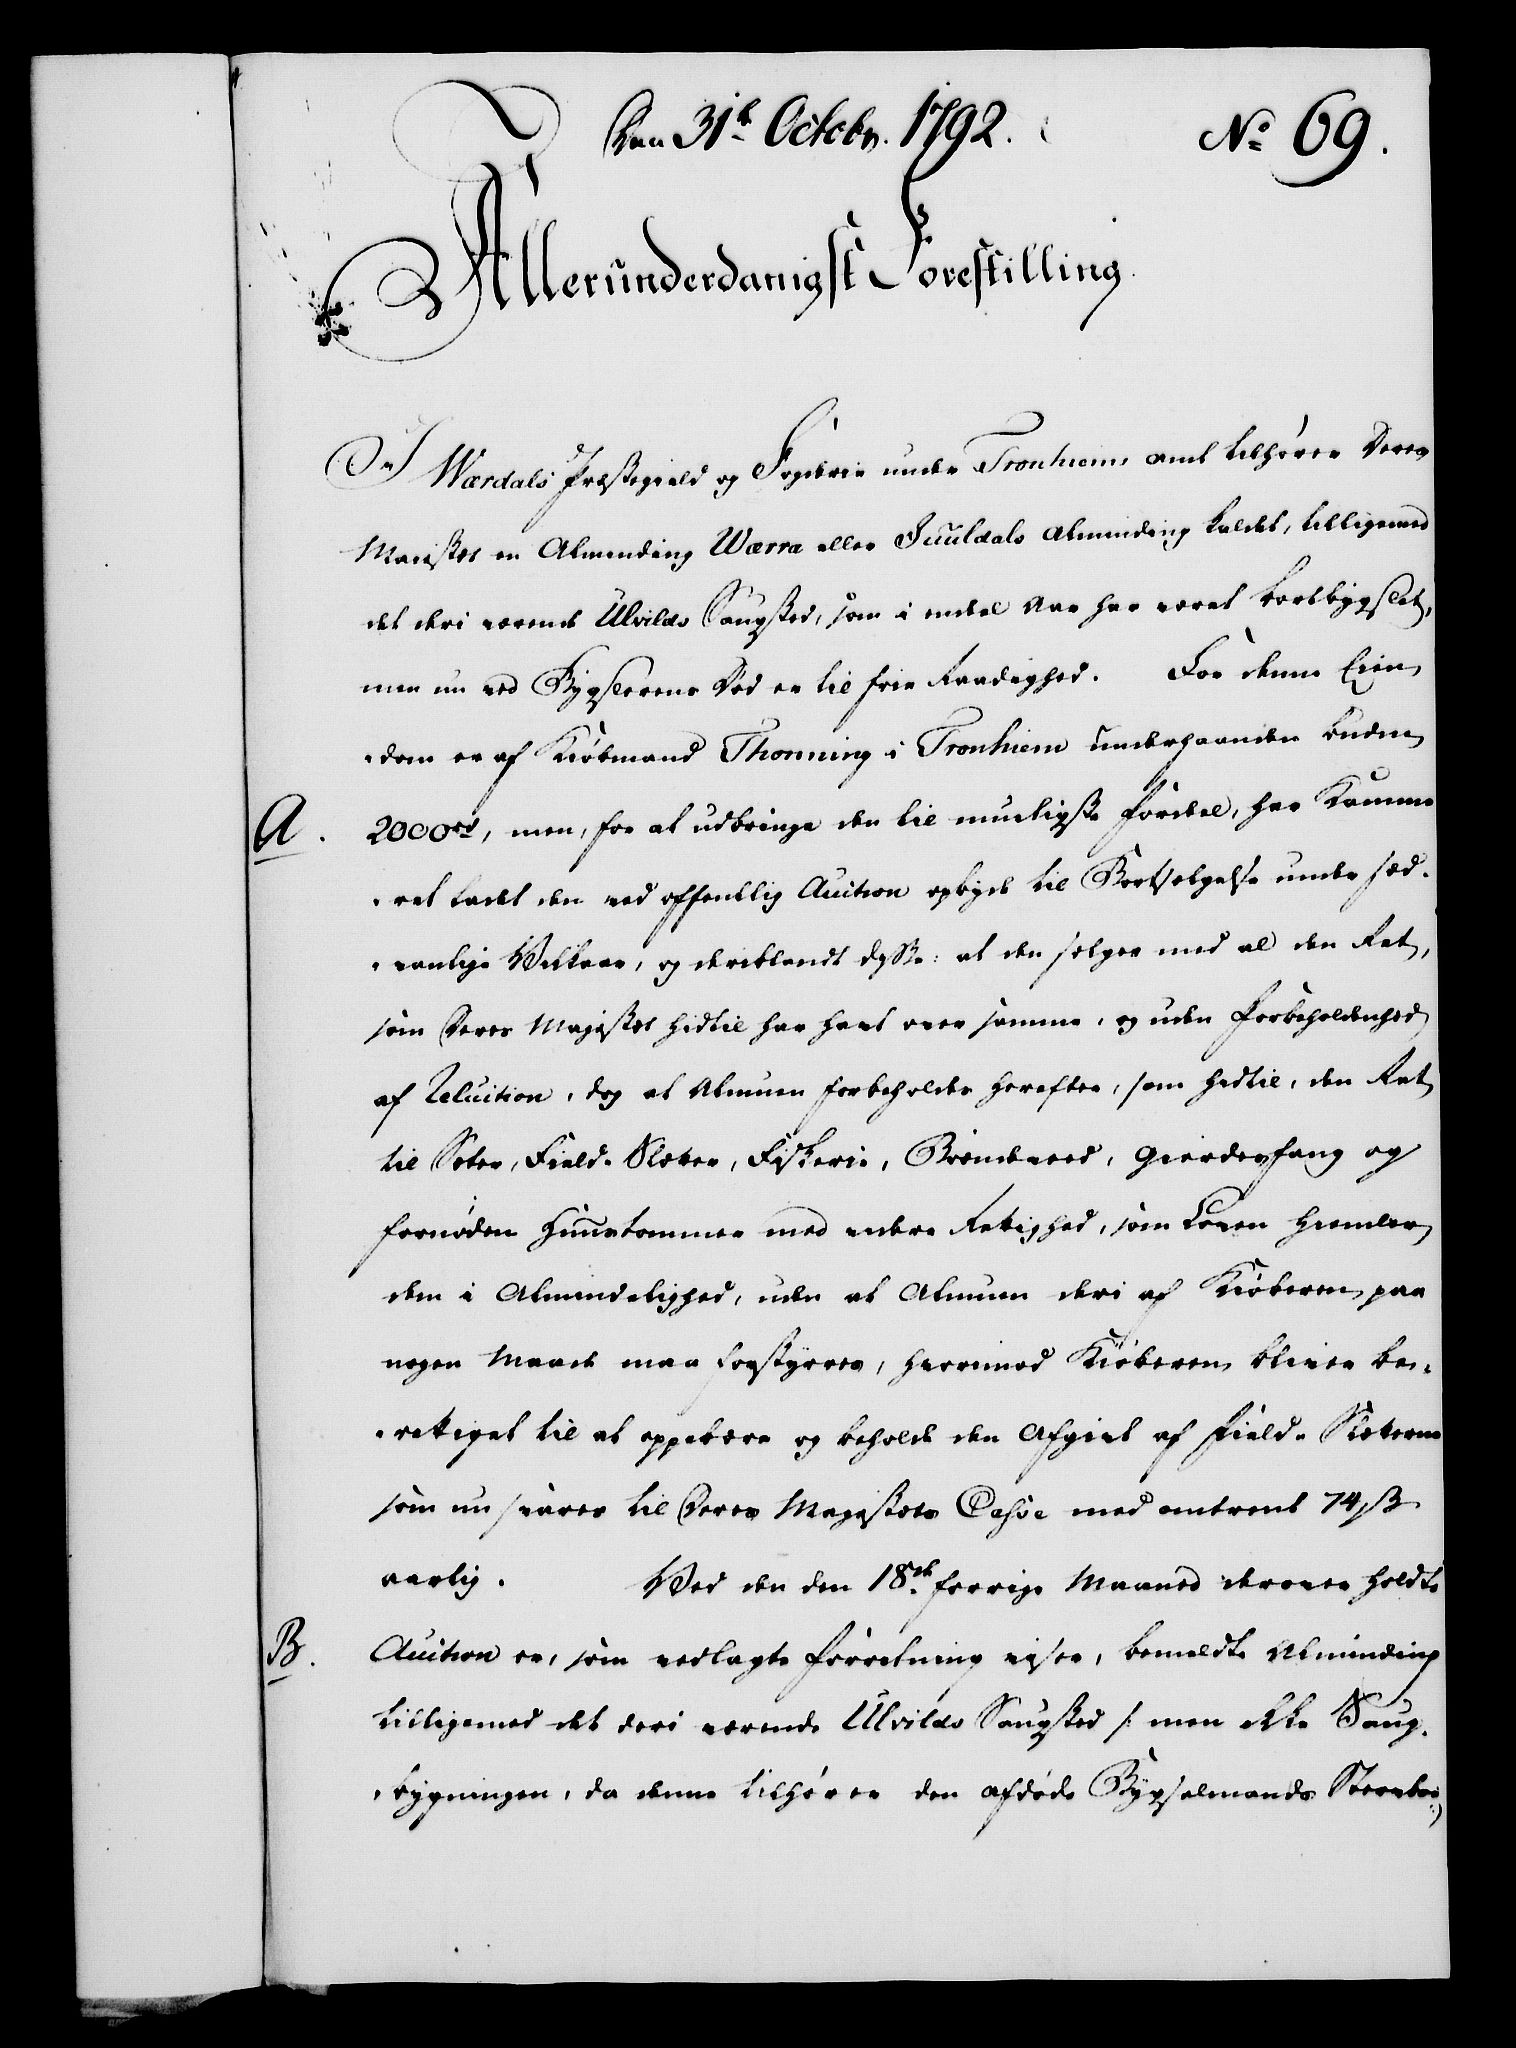 Den 31te Octobr. 1792.
No 69.
Allerunderdanigst Forestilling.
I Wærdals Præstegield og Fogderie under Tronhiems Amt tilhører Deres
Majestet en Alminding Wærra eller Juuldals Alminding kaldet, tilligemed
det deri værende Ulvilds Saugsted, som i endeel Aar har været bortbygslet,
men nu ved Bygslerens Død er til frie Raadighed. For denne Eien-
-dom er af Kiøbmand Thonning i Tronhiem underhaanden buden
A.
2000 rd, men, for at udbringe den til mueligste Fordeel, har Kamme-
-ret ladet den ved offentlig Auction opbyde til Bortsælgelse under sæd-
-vanlige Vilkaar, og deriblandt disse: at den sælges med al den Ret,
som Deres Majestet hidtil har havt over samme, og uden Forbeholdenhed
af Reluition, dog at Almuen forbeholdes herefter, som hidtil, den Ret
til Sæter, Field-Slætter, Fiskerie, Brændeveed, Gierdesfang og
fornøden Huustømmer med videre Rettighed, som Loven hiemler
dem i Almindelighed, uden at Almuen deri af Kiøberen paa
nogen Maade maa forstyrres, hvorimod Kiøberen bliver be-
-rettiget til at oppebære og beholde den Afgivt af Field-Slætterne
som nu svares til Deres Majestets Casse med omtrent 74 ß
aarlig. Ved den den 18de forrige Maaned derover holdte
B.
Auction er, som vedlagte Forretning viser, bemeldte Alminding
tilligemed det deri værende Ulvilds Saugsted /: men ikke Saug-
-bygningen, da denne tilhører den afdøde Bygselmands Sterboe :/